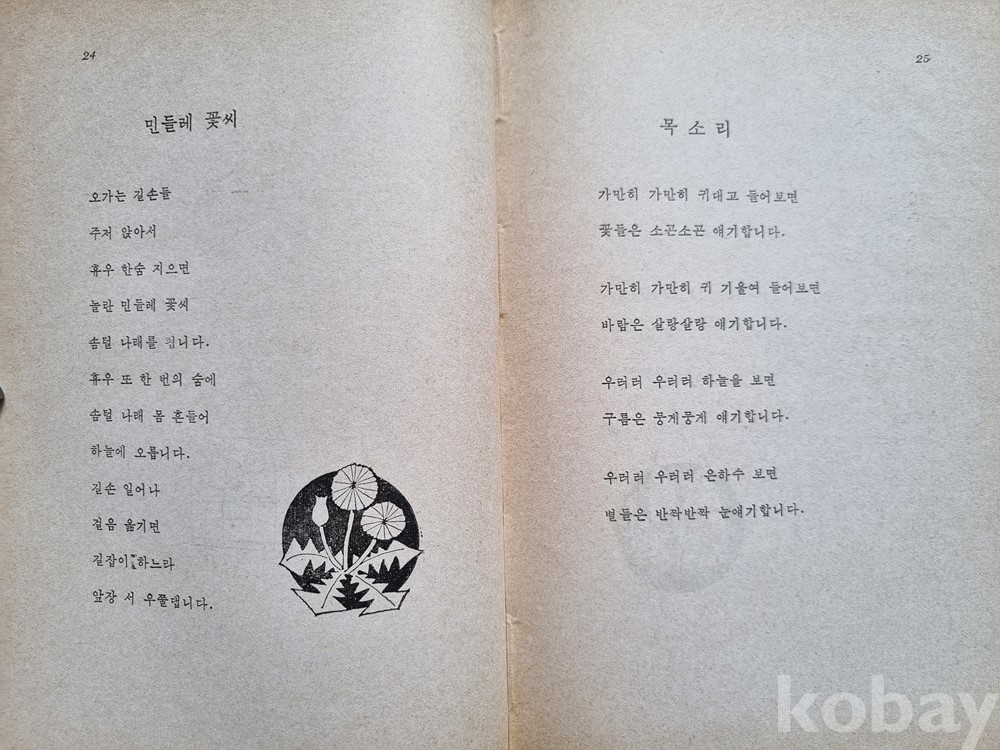 24
민들레 꽃씨
오가는 길손들
주저 앉아서
휴우 한숨 지으면
놀란 민들레 꽃씨
솜털 나래를 폅니다.
휴우 또 한 번의 숨에
솜털 나래 몸 흔들어
하늘에 오릅니다.
길손 일어나
걸음 옮기면
길잡이 하느라
앞장 서 우쭐댑니다.
25
목소리
가만히 가만히 귀대고 들어보면
꽃들은 소곤소곤 얘기합니다.
가만히 가만히 귀 기울여 들어보면
바람은 살랑살랑 얘기합니다.
우러러 우러러 하늘을 보면
구름은 뭉게뭉게 얘기합니다.
우러러 우러러 은하수 보면
별들은 반짝반짝 눈얘기합니다.
kobay